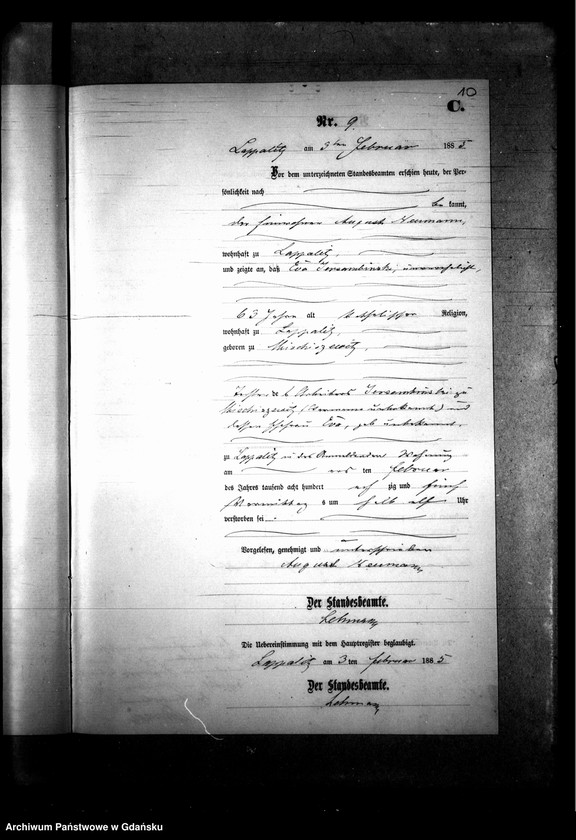 10
C.
Nr. 9.
Lappalitz am 3ten Februar 1885
Vor dem unterzeichneten Standesbeamten erschien heute, der Per-
sönlichkeit nach
be kannt,
der Einwohner August Neumann,
wohnhaft zu Lappalitz,
und zeigte an, daß Eva
63 Jahre alt katholischer Religion,
wohnhaft zu Lappalitz,
geboren zu
Tochter des Arbeiters zu
und
dessen Ehefrau Eva, geb. unbekannt.
zu Lappalitz in des Anmeldenden Wohnung
am ten Februar
des Jahres tausend acht hundert acht zig und fünf
Vormittag s um halb elf Uhr
verstorben sei
Vorgelesen, genehmigt und unterschrieben
August Neumann
Der Standesbeamte.
Die Uebereinstimmung mit dem Hauptregister beglaubigt.
Lappalitz am 3 ten Februar 1885
Der Standesbeamte.
Archiwum Państwowe w Gdańsku